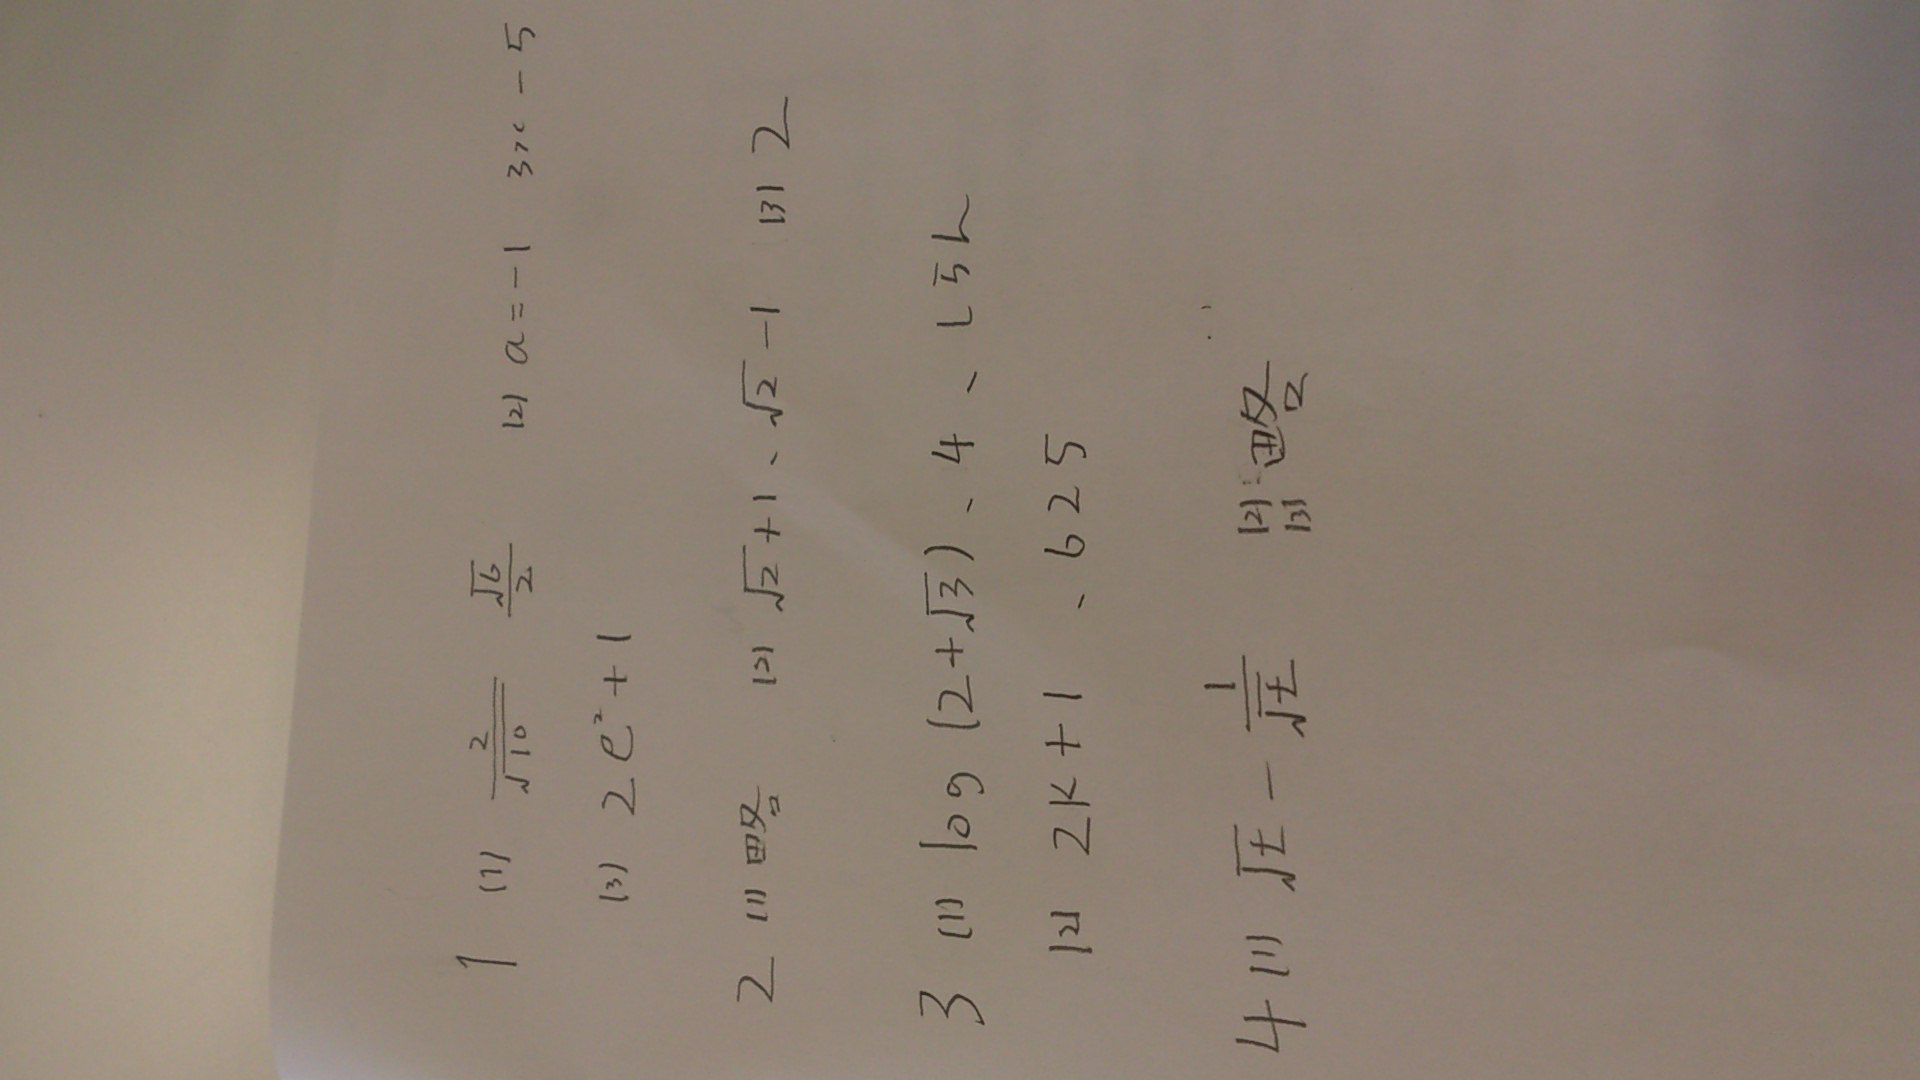 1 (1) 2/√10 √6/2 (2) a=-1 3x-5
(3) 2e²+1
2 (1) 略 (2) √2+1、√2-1 (3) 2
3 (1) log(2+√3)、4、
(2) 2k+1、625
4 (1) √t - 1/√t (2) 略
(3)